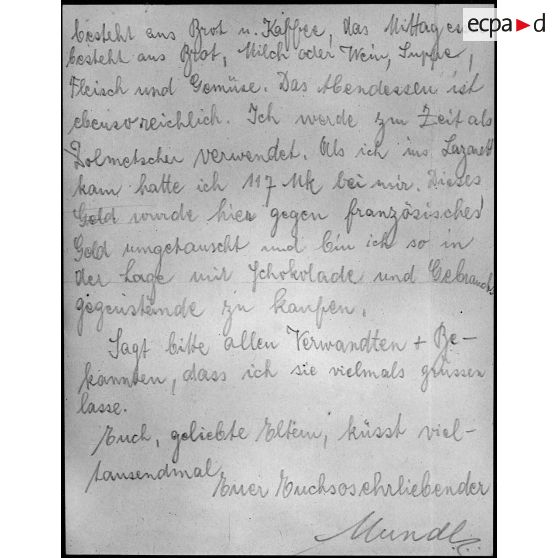 ecpad
besteht aus Brot u. Kaffee, das Mittages
besteht aus Brot, Milch oder Wein, Suppe,
Fleisch und Gemüse. Das Abendessen ist
ebenso reichlich. Ich werde zur Zeit als
Dolmetscher verwendet. Als ich ins Lazarett
kam hatte ich 117 Mk bei mir. Dieses
Geld wurde hier gegen französisches
Geld umgetauscht und bin ich so in
der Lage mir Schokolade und Gebrauchs
gegenstände zu kaufen.
Sagt bitte allen Verwandten + Be-
kannten, dass ich sie vielmals grüssen
lasse.
Euch, geliebte Eltern, küsst viel-
tausendmal
Euer Euch so sehr liebender
Mundl